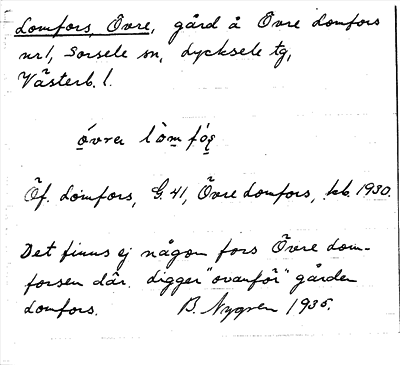 Lomfors, Övre, gård å Övre Lomfors
nr 1, Sorsele sn, Lycksele tg,
Västerb. l.
Öf. Lomfors, G. 41, Övre Lomfors, kb. 1930.
Det finns ej någon fors Övre Lom-
forsen där. Ligger "ovanför" gården
Lomfors. B. Nygren 1935.